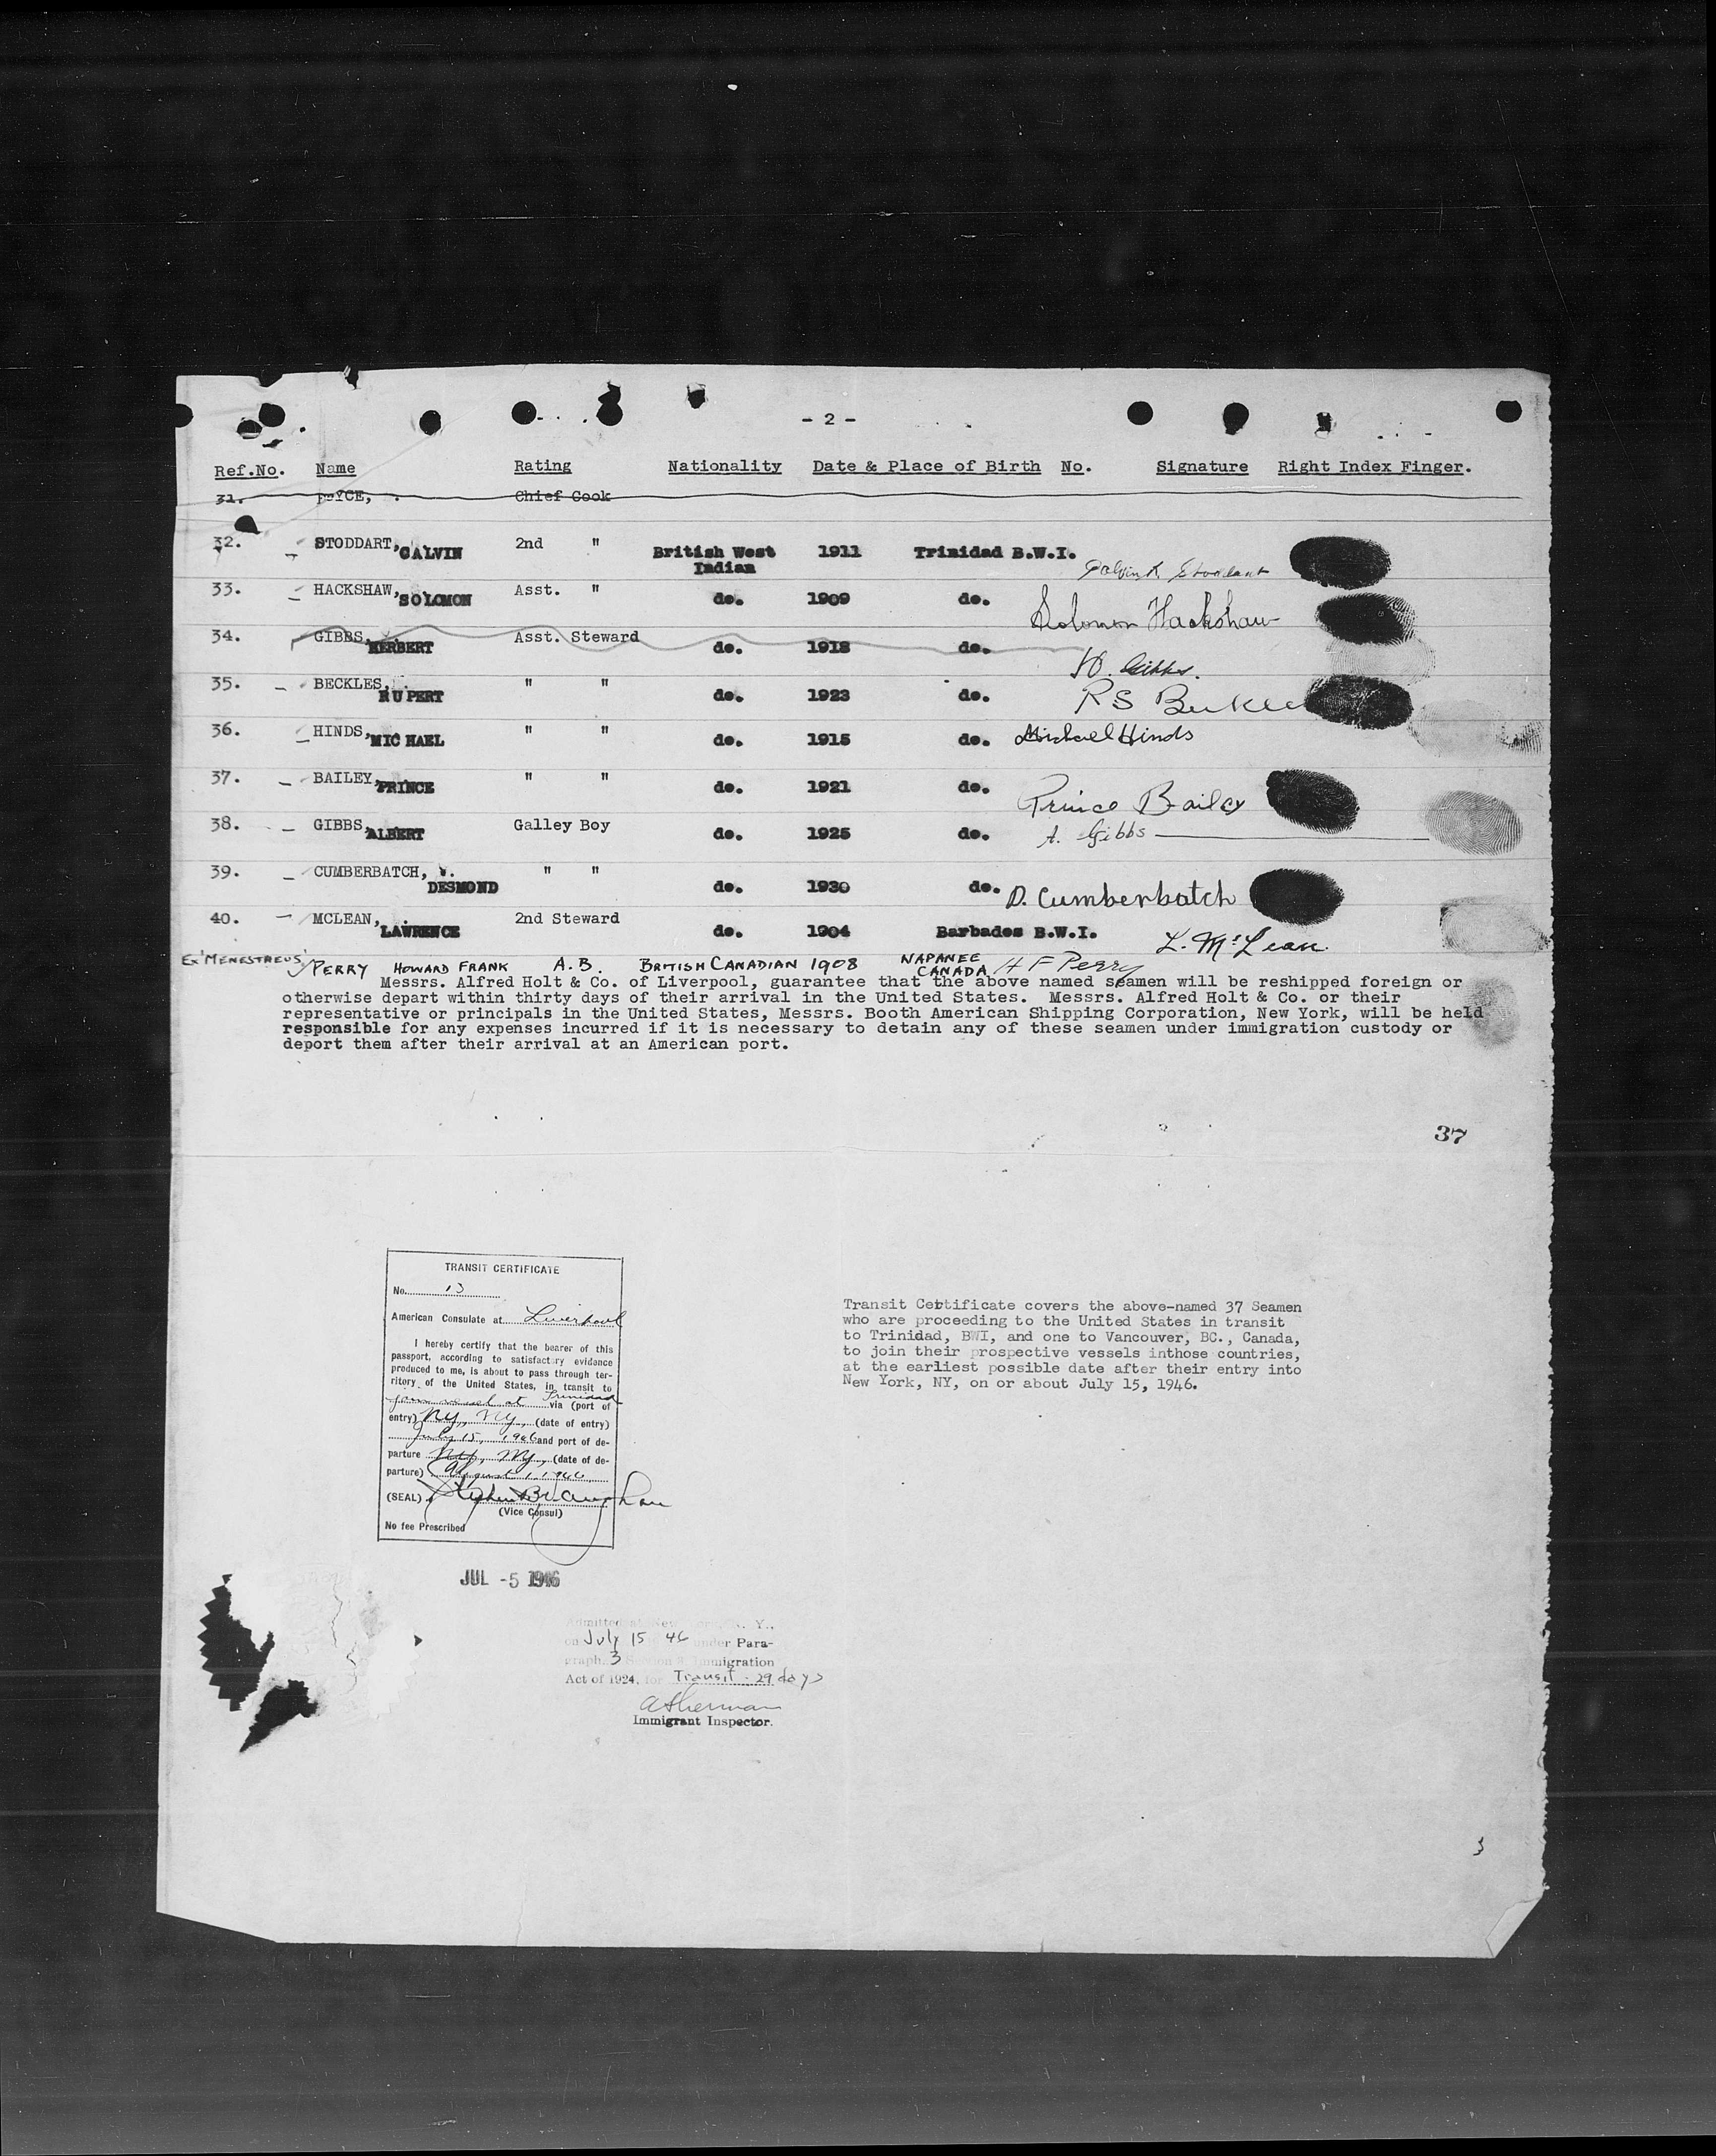 - 2 -
Ref.No. Name Rating Nationality Date & Place of Birth No. Signature Right Index Finger.
31. Chief Cook
32. STODDART, CALVIN 2nd " British West Indian 1911 Trinidad B.W.I.
33. HACKSHAW, SOLOMON Asst. " do. 1909 do. Solomon Hackshaw
34. GIBBS, HERBERT Asst. Steward do. 1918 do. H. Gibbs.
35. BECKLES, RUPERT " " do. 1923 do. R S
36. HINDS, MICHAEL " " do. 1915 do. Michael Hinds
37. BAILEY, PRINCE " " do. 1921 do. Prince Bailey
38. GIBBS, ALBERT Galley Boy do. 1925 do. A. Gibbs
39. CUMBERBATCH, DESMOND " " do. 1930 do. D. Cumberbatch
40. MCLEAN, LAWRENCE 2nd Steward do. 1904 Barbados B.W.I. L. McLean.
Ex 'MENESTHEUS' PERRY HOWARD FRANK A.B. BRITISH CANADIAN 1908 NAPANEE CANADA H F Perry
Messrs. Alfred Holt & Co. of Liverpool, guarantee that the above named seamen will be reshipped foreign or
otherwise depart within thirty days of their arrival in the United States. Messrs. Alfred Holt & Co. or their
representative or principals in the United States, Messrs. Booth American Shipping Corporation, New York, will be held
responsible for any expenses incurred if it is necessary to detain any of these seamen under immigration custody or
deport them after their arrival at an American port.
37
TRANSIT CERTIFICATE
No. 13
American Consulate at Liverpool
I hereby certify that the bearer of this
passport, according to satisfactory evidence
produced to me, is about to pass through ter-
ritory of the United States, in transit to
join vessel at Trinidad via (port of
entry) NY, NY, (date of entry)
July 15, 1946 and port of de-
parture NY, NY, (date of de-
parture) August 1, 1946
(SEAL)
(Vice Consul)
No fee Prescribed
JUL -5 1946
Transit Certificate covers the above-named 37 Seamen
who are proceeding to the United States in transit
to Trinidad, BWI, and one to Vancouver, BC., Canada,
to join their prospective vessels inthose countries,
at the earliest possible date after their entry into
New York, NY, on or about July 15, 1946.
Admitted at New York, N. Y.,
on July 15 46 under Para-
graph 3 Section 3 Immigration
Act of 1924, for Transit - 29 days
A Sherman
Immigrant Inspector.
3